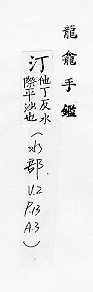 龍龕手鑑
汀他丁反水
際平沙也
(水部.
V.2
P.13
A.3)